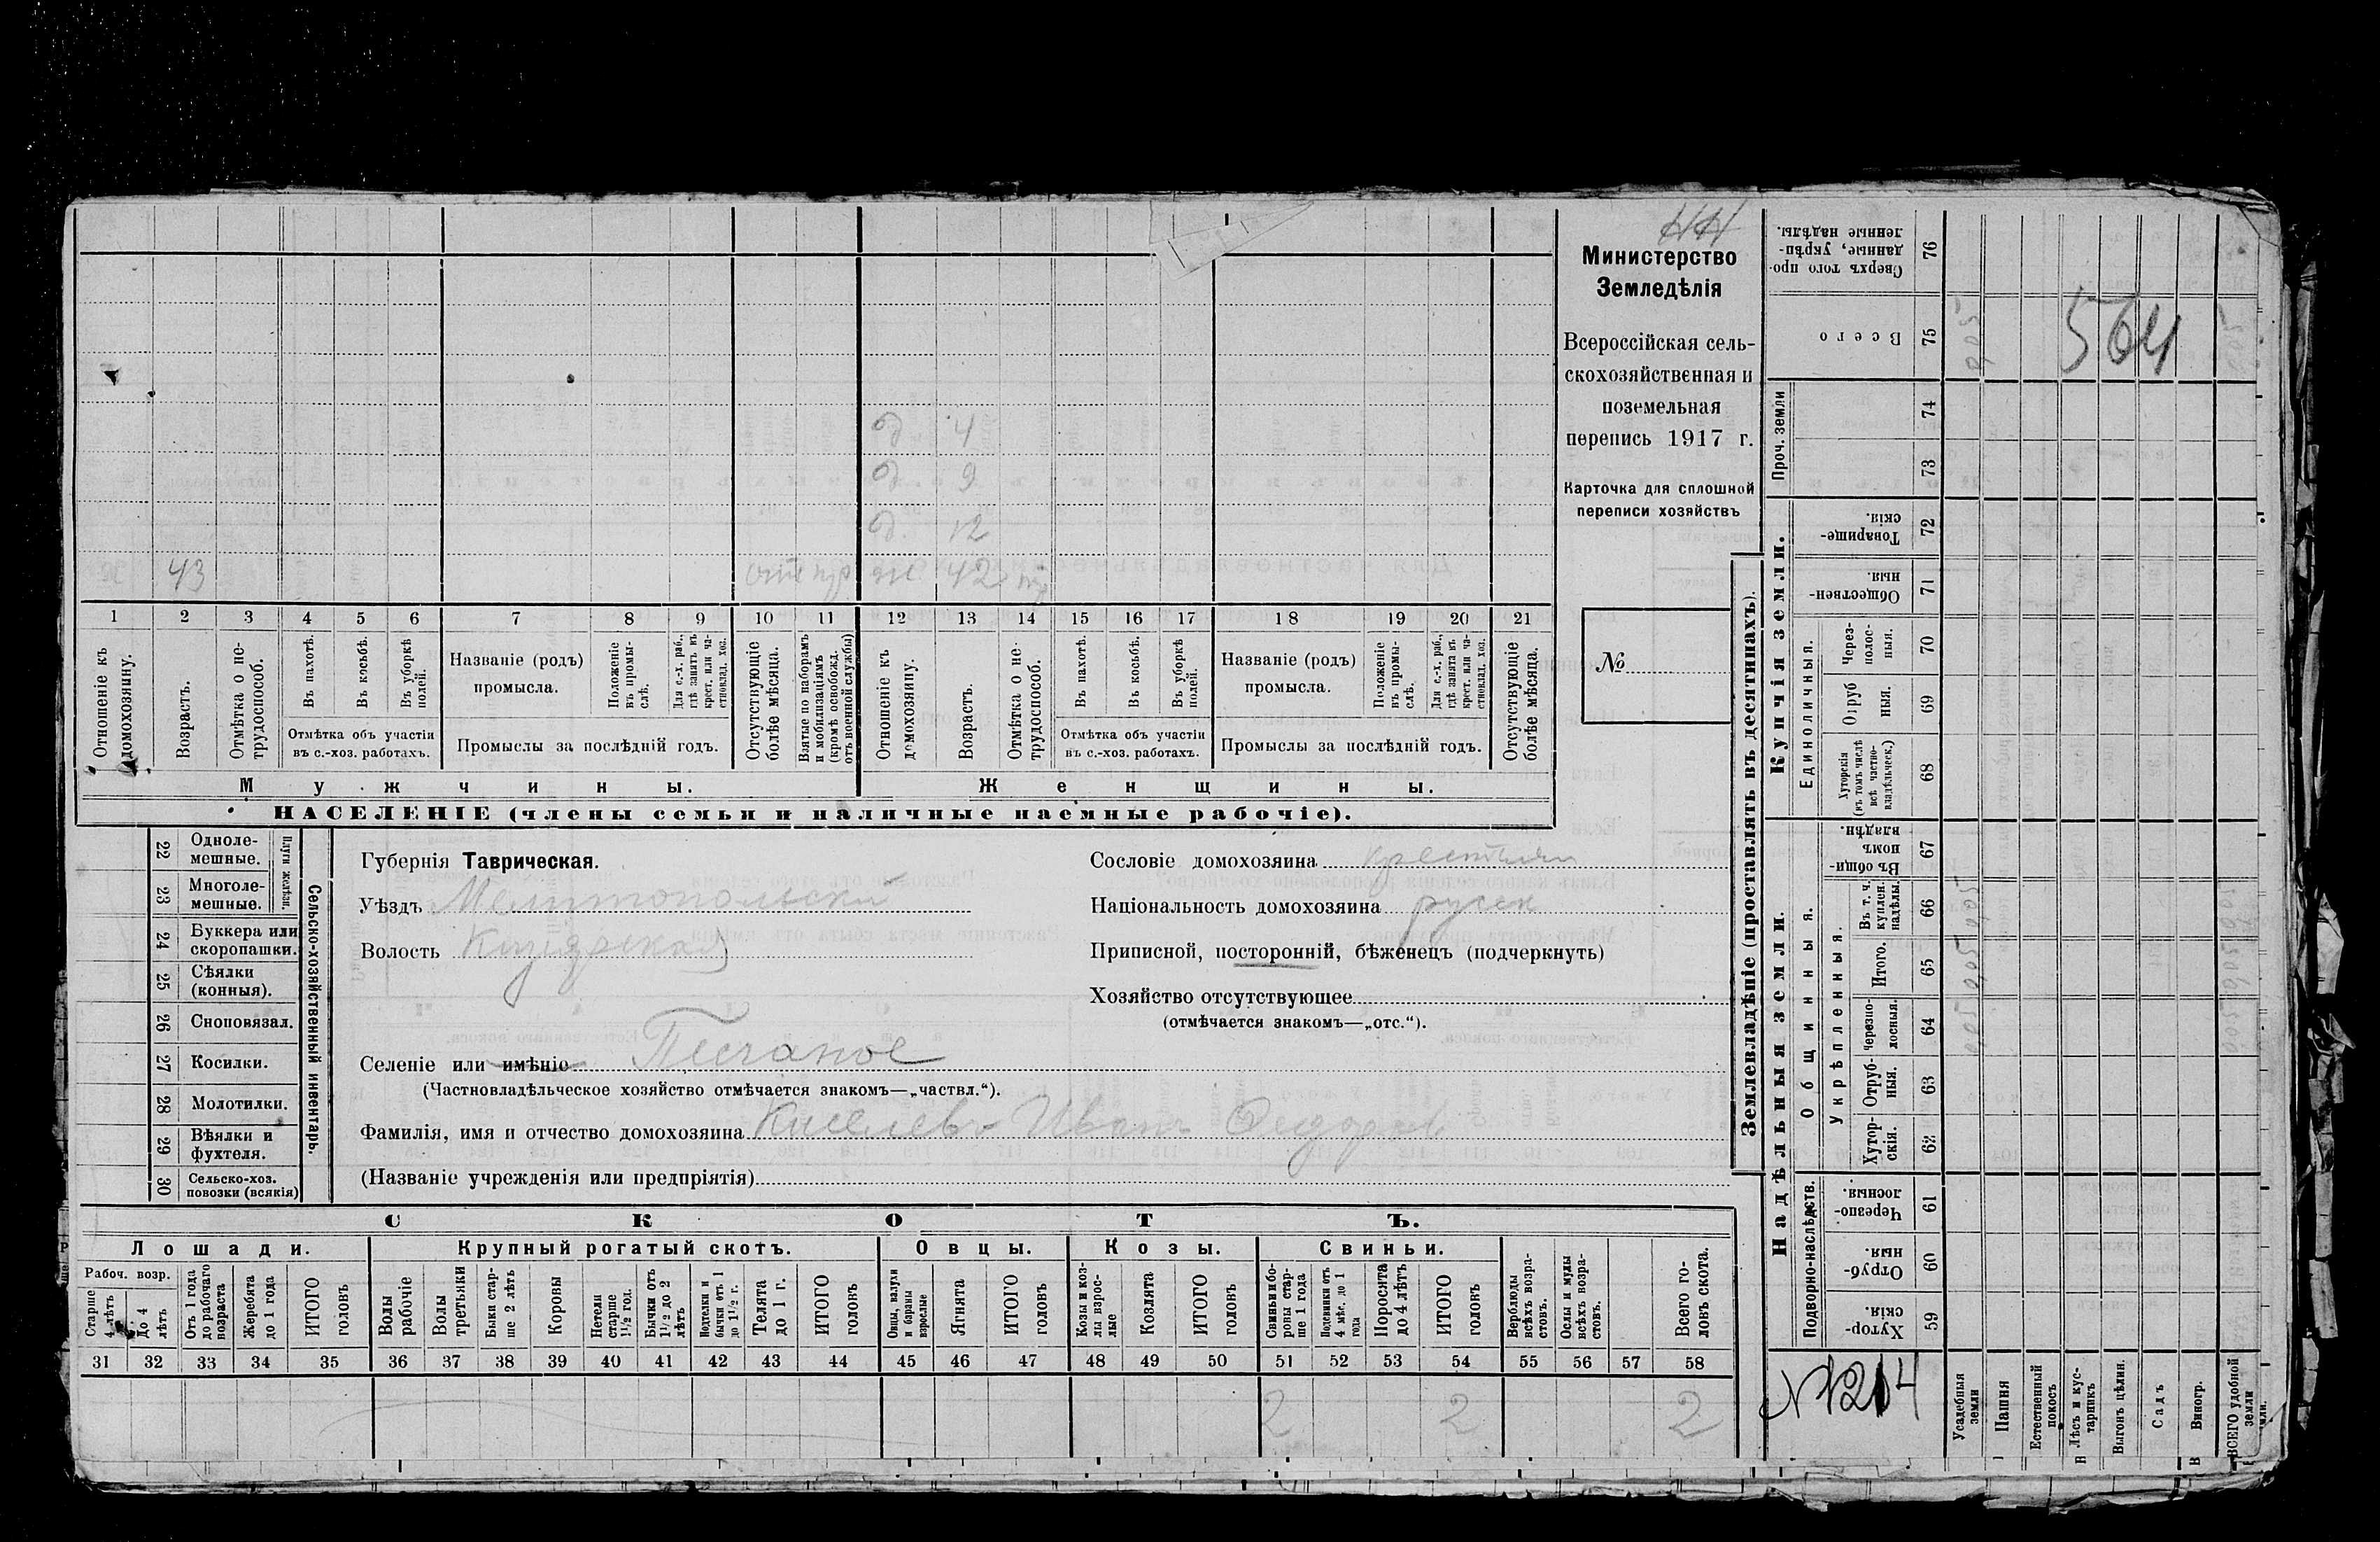 НН
564
д 4
д 9
д. 12
43 ж 42
1 2 3 4 5 6 7 8 9 10 11 12 13 14 15 16 17 18 19 20 21
Отношеніе къ домохозяину.
Возрастъ.
Отмѣтка о не-
трудоспособ.
Въ пахотѣ.
Въ косьбѣ.
Въ уборкѣ
полей.
Отмѣтка объ участіи
въ с.-хоз. работахъ.
Названіе (родъ)
промысла.
Положеніе
въ промы-
слѣ.
Для с.-х. раб.,
гдѣ занятъ въ
крест. или ча-
стновлад. хоз.
Промыслы за послѣдній годъ.
Отсутствующіе
болѣе мѣсяца.
Взятые по наборамъ
и мобилизаціямъ
(кромѣ освобожд.
отъ военной службы)
Отношеніе къ
домохозяину.
Возрастъ.
Отмѣтка о не-
трудоспособ.
Въ пахотѣ.
Въ косьбѣ.
Въ уборкѣ
полей.
Отмѣтка объ участіи
въ с.-хоз. работахъ.
Названіе (родъ)
промысла.
Положеніе
въ промы-
слѣ.
Для с.-х. раб.,
гдѣ занята въ
крест. или ча-
стновлад. хоз.
Промыслы за послѣдній годъ.
Отсутствующіе
болѣе мѣсяца.
Мужчины.
Женщины.
НАСЕЛЕНІЕ (члены семьи и наличные наемные рабочіе).
Министерство
Земледѣлія
Всероссійская сель-
скохозяйственная и
поземельная
перепись 1917 г.
Карточка для сплошной
переписи хозяйствъ
№
22 Одноле-
мешные.
23 Многоле-
мешные.
Плуги желѣзн.
24 Буккера или
скоропашки.
25 Сѣялки
(конныя).
26 Сноповязал.
27 Косилки.
28 Молотилки.
29 Вѣялки и
фухтеля.
30 Сельско-хоз.
повозки (всякія)
Сельско-хозяйственный инвентарь.
Губернія Таврическая.
Уѣздъ Мелитопольскій
Волость Кизіярская
Селеніе или имѣніе Песчаное
(Частновладѣльческое хозяйство отмѣчается знакомъ—„частвл.“).
Фамилія, имя и отчество домохозяина Киселевъ Иванъ Федоров
(Названіе учрежденія или предпріятія)
Сословіе домохозяина крестьян
Національность домохозяина русск
Приписной, посторонній, бѣженецъ (подчеркнуть)
Хозяйство отсутствующее
(отмѣчается знакомъ—„отс.“).
СКОТЪ.
Лошади.
Крупный рогатый скотъ.
Овцы.
Козы.
Свиньи.
Рабоч. возр.
Старше
4 лѣтъ
До 4
лѣтъ
Отъ 1 года
до рабочаго
возраста
Жеребята
до 1 года
ИТОГО
головъ
Волы
рабочіе
Волы
третьяки
Быки стар-
ше 2 лѣтъ
Коровы
Нетели
старше
1½ год.
Бычки отъ
1½ до 2
лѣтъ
Подтелки и
бычки отъ 1
до 1½ г.
Телята
до 1 г.
ИТОГО
головъ
Овцы, валухи
и бараны
взрослые
Ягнята
ИТОГО
головъ
Козы и коз-
лы взрос-
лые
Козлята
ИТОГО
головъ
Свиньи и бо-
ровы стар-
ше 1 года
Подсвинки отъ
4 мѣс. до 1
года
Поросята
до 4 лѣтъ
ИТОГО
головъ
Верблюды
всѣхъ возра-
стовъ.
Ослы и мулы
всѣхъ возра-
стовъ.
Всего го-
ловъ скота.
31 32 33 34 35 36 37 38 39 40 41 42 43 44 45 46 47 48 49 50 51 52 53 54 55 56 57 58
2 2 2
Землевладѣніе (проставлять въ десятинахъ).
Сверхъ того про-
данные, укрѣп-
ленные надѣлы.
76
Всего
75
Проч. земли
74
73
Купчія земли.
Товарище-
скія.
72
Обществен-
ныя.
71
Единоличныя.
Через-
полос-
ныя.
70
Отруб
ныя.
69
Хуторскія
(въ томъ числѣ
всѣ частно-
владѣльческ.)
68
Надѣльныя земли.
Общинныя.
Въ общи-
номъ
владѣн.
67
Укрѣпленныя.
Въ т. ч.
куплен.
надѣлы.
66
Итого.
65
Черезпо-
лосныя.
64
Отруб-
ныя.
63
Хутор-
скія.
62
Подворно-наслѣдств.
Черезпо-
лосныя.
61
Отруб-
ныя.
60
Хутор-
скія.
59
№ 214
Усадебныя
земли
Пашня
Естественный
покосъ
Лѣсъ и кус-
тарникъ
Выгонъ цѣлин.
Садъ
Виногр.
ВСЕГО удобной
земли